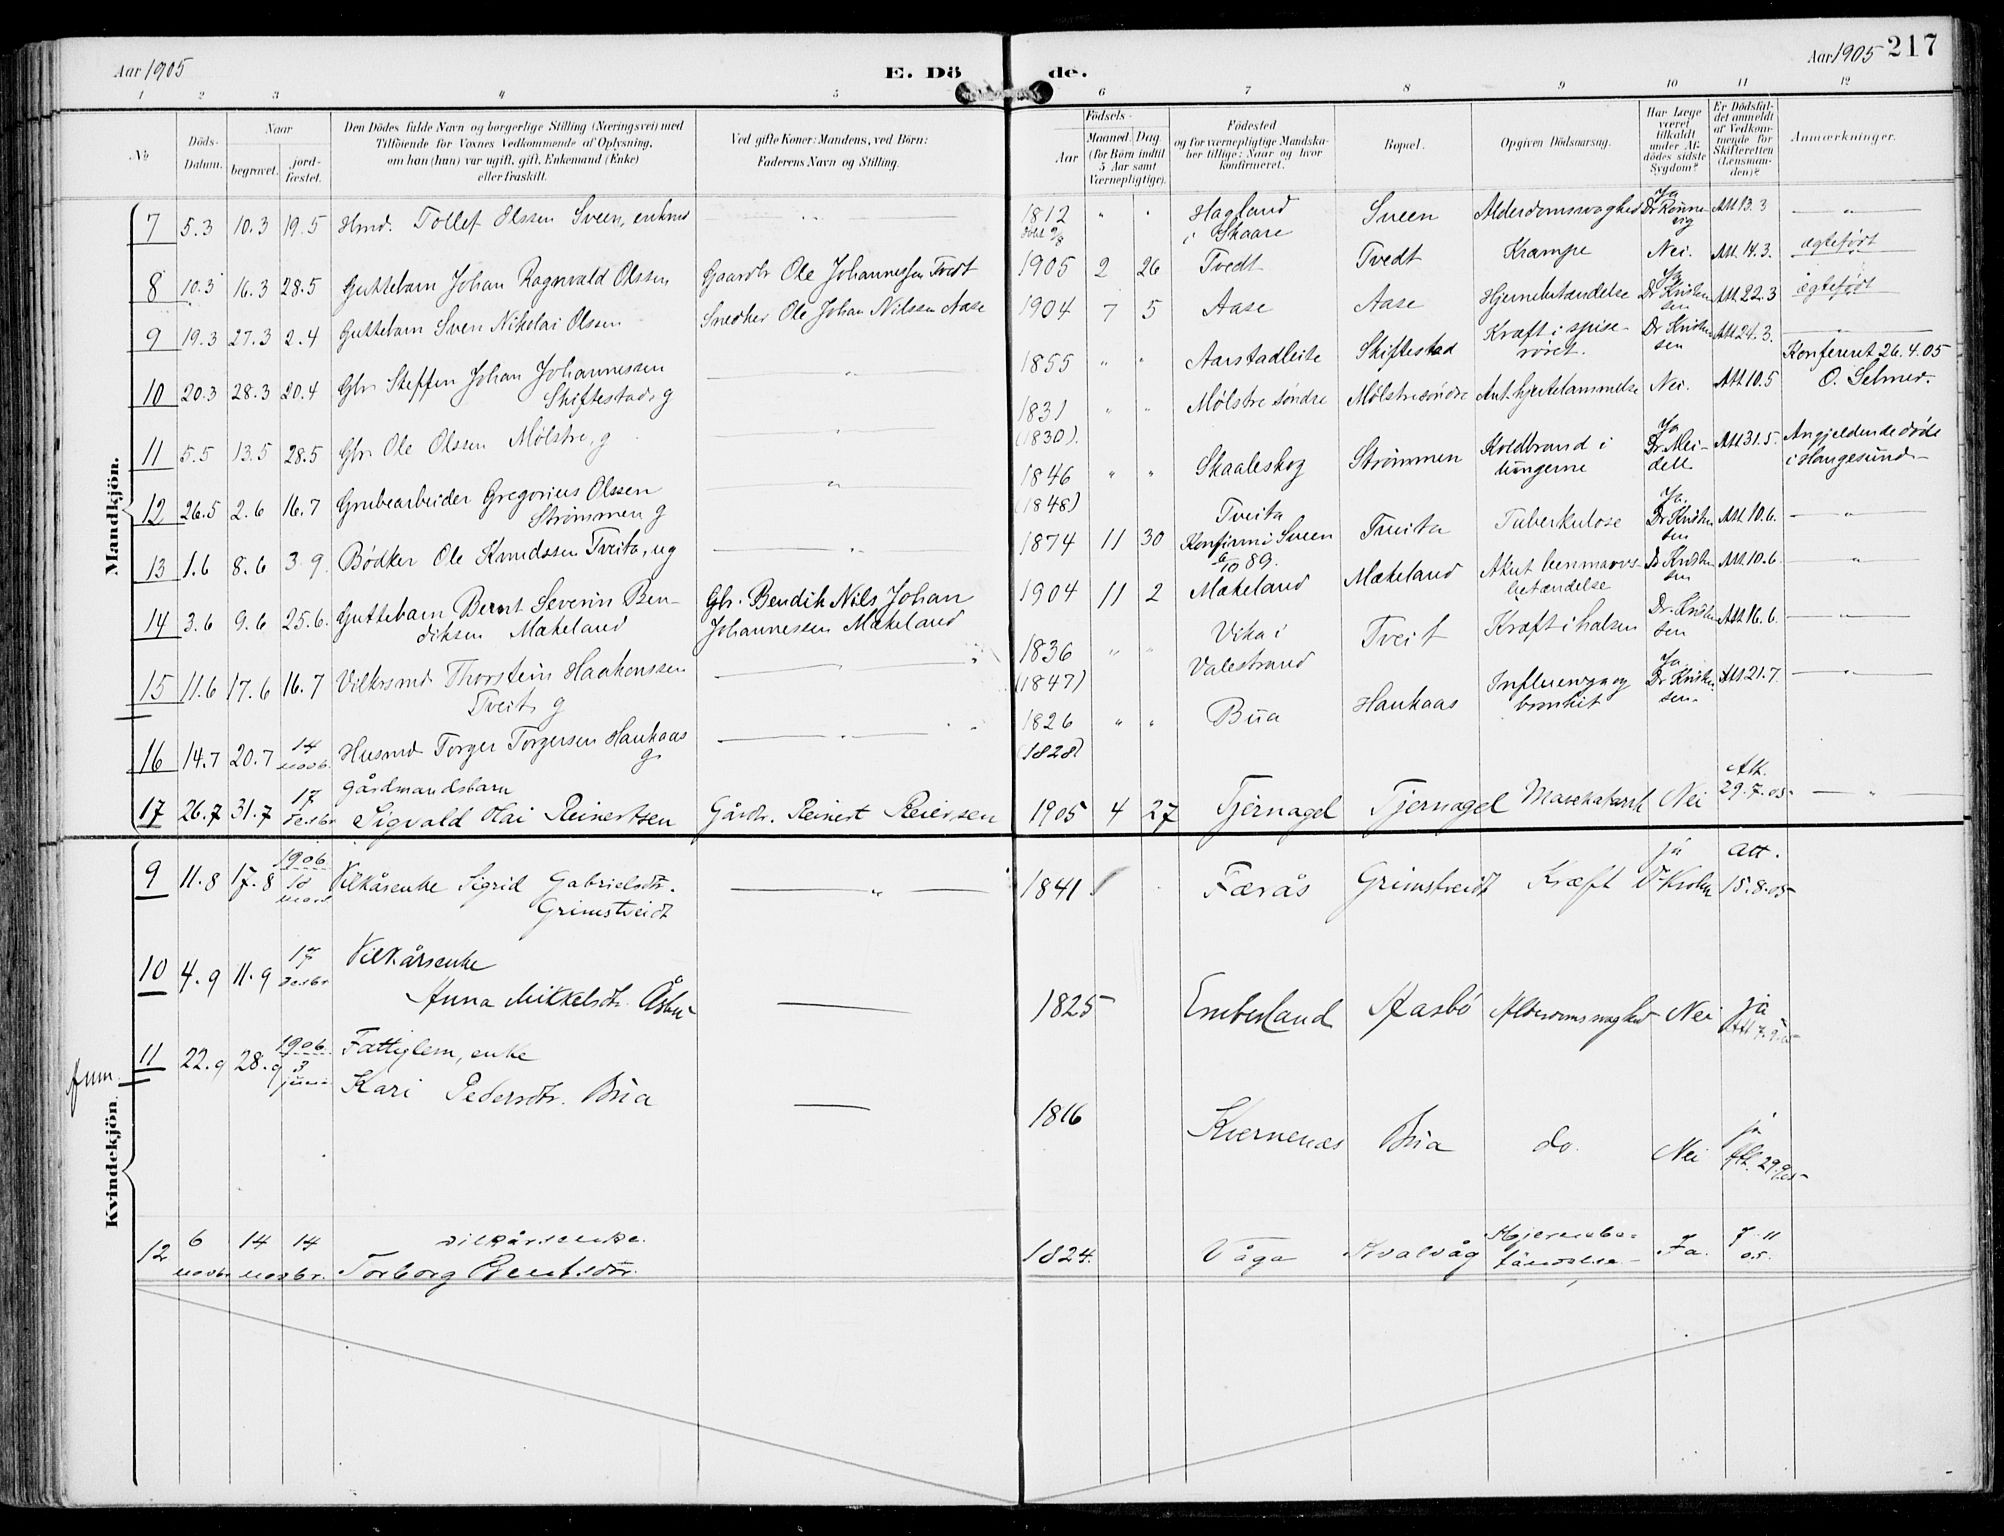 Aar 1905
E. Dö
de.
Aar 1905
217
1 2 3 4 5 6 7 8 9 10 11 12
No
Döds-Datum.
Naar
begravet.
jord-fæstet.
Den Dödes fulde Navn og borgerlige Stilling (Næringsvei) med
Tilföiende for Voxnes Vedkommende af Oplysning,
om han (hun) var ugift, gift, Enkemand (Enke)
eller fraskilt.
Ved gifte Koner: Mandens, ved Börn:
Faderens Navn og Stilling.
Födsels-
Aar
Maaned
Dag
(for Börn indtil
5 Aar samt
Værnepligtige).
Födested
og for værnepligtige Mandska-
ber tillige: Naar og hvor
konfirmeret.
Bopæl.
Opgiven Dödsaarsag.
Har Læge
været
tilkaldt
under Af-
dödes sidste
Sygdom?
Er Dödsfal-
det anmeldt
af Vedkom-
mende for
Skifteretten
(Lensman-
den)?
Anmærkninger.
Mandkjön.
7 5.3 10.3 19.5 Hmd. Tollef Olssen Sveen, enkmd 1812 Hagland i Skaare Sveen Alderdomssvaghed Ja Att 13.3
8 10.3 16.3 28.5 Guttebarn Johan Ragnvald Olssen Gaardbr Ole Johannessen Tvedt 1905 2 26 Tvedt Tvedt Krampe Nei. Att. 14.3. ægtefødt
9 19.3 27.3 2.4 Guttebarn Sven Nikolai Olsen Snedker Ole Johan Nilssen Aase 1904 7 5 Aase Aase Hjernebetændelse Ja Dr Kristensen Att 22.3 ægtefødt
10 20.3 28.3 20.4 Gbr. Steffen Johan Johannessen
Skiftestad, g 1855 Aarstadleite Skiftestad Kræft i spiserøret. Dr Kristensen Att 24.3.
Konfereret 26.4.05
O. Selmer.
11 5.5 13.5 28.5 Gbr. Ole Olssen Mølstre, g 1831 (1830). Mølstre søndre Mølstresøndre Ant. hjertelammelse Nei. Att 10.5
12 26.5 2.6 16.7 Grubearbeider Gregorius Olssen
Strømmen g 1846 (1848) Skaaleskog Strømmen Koldbrand i lungerne Ja Dr. Meidell Att 31.5. Angjeldende døde
i Haugesund
13 1.6 8.6 3.9. Bødker Ole Knudssen Tveita, ug 1874 11 30 Tveita
Konfirm i Sveen 6/10 89. Tveita Tuberkulose Ja. Dr Kristensen Att. 10.6.
14 3.6 9.6 25.6. Guttebarn Bernt Severin Ben-
diksen Mækeland Gbr. Bendik Nils Johan
Johannessen Mækeland 1904 11 2 Mækeland Mækeland Akut benmarvs-
betændelse Dr Kristensen Att. 10.6.
15 11.6 17.6 16.7 Vilkrsmd Thorstein Haakonssen
Tveit, g 1836 (1847) Vika i
Valestrand Tveit Kræft i halsen Dr. Kristensen Att 16.6.
16 14.7 20.7 14 novb. Husmd Torger Torgersen Haukaas
g. 1826 (1828) Bua Haukaas Influenza og
bronkit Ja Dr Kristensen. Att 21.7.
17 26.7 31.7 17 desbr Gårdmandsbarn
Sigvald Olai Reinertsen Gårdbr. Reinert Reiersen 1905 4 27 Tjernagel Tjernagel Mavekatarrh Nei Att. 29.7.05
Kvindekjön.
9 11.8 17.8 1906 18 mars Vilkårsenke Sigrid Gabrielsdtr.
Grimstveidt 1841 Færås Grimstveidt Kræft ja Dr Krohn att. 15.8.05
10 4.9 11.9 17 desbr Vilkårsenke
Anna Mikkelsdtr. Åsbu 1825 Emberland Aasbø Alderdomssvaghed Nei ja
11 22.9 28.9 1906 3 juni Fattiglem, enke
Kari Pedersdtr. Bua 1816 Kvernenæs Bua do. Nei ja Att. 29.9.05
12 6 novbr 14 novbr 14 novbr. Vilkårsenke.
Torborg Bentsdtr. 1824. Våga Kvalvåg Hjernebe-
tændelse. Ja. 7.11 05.